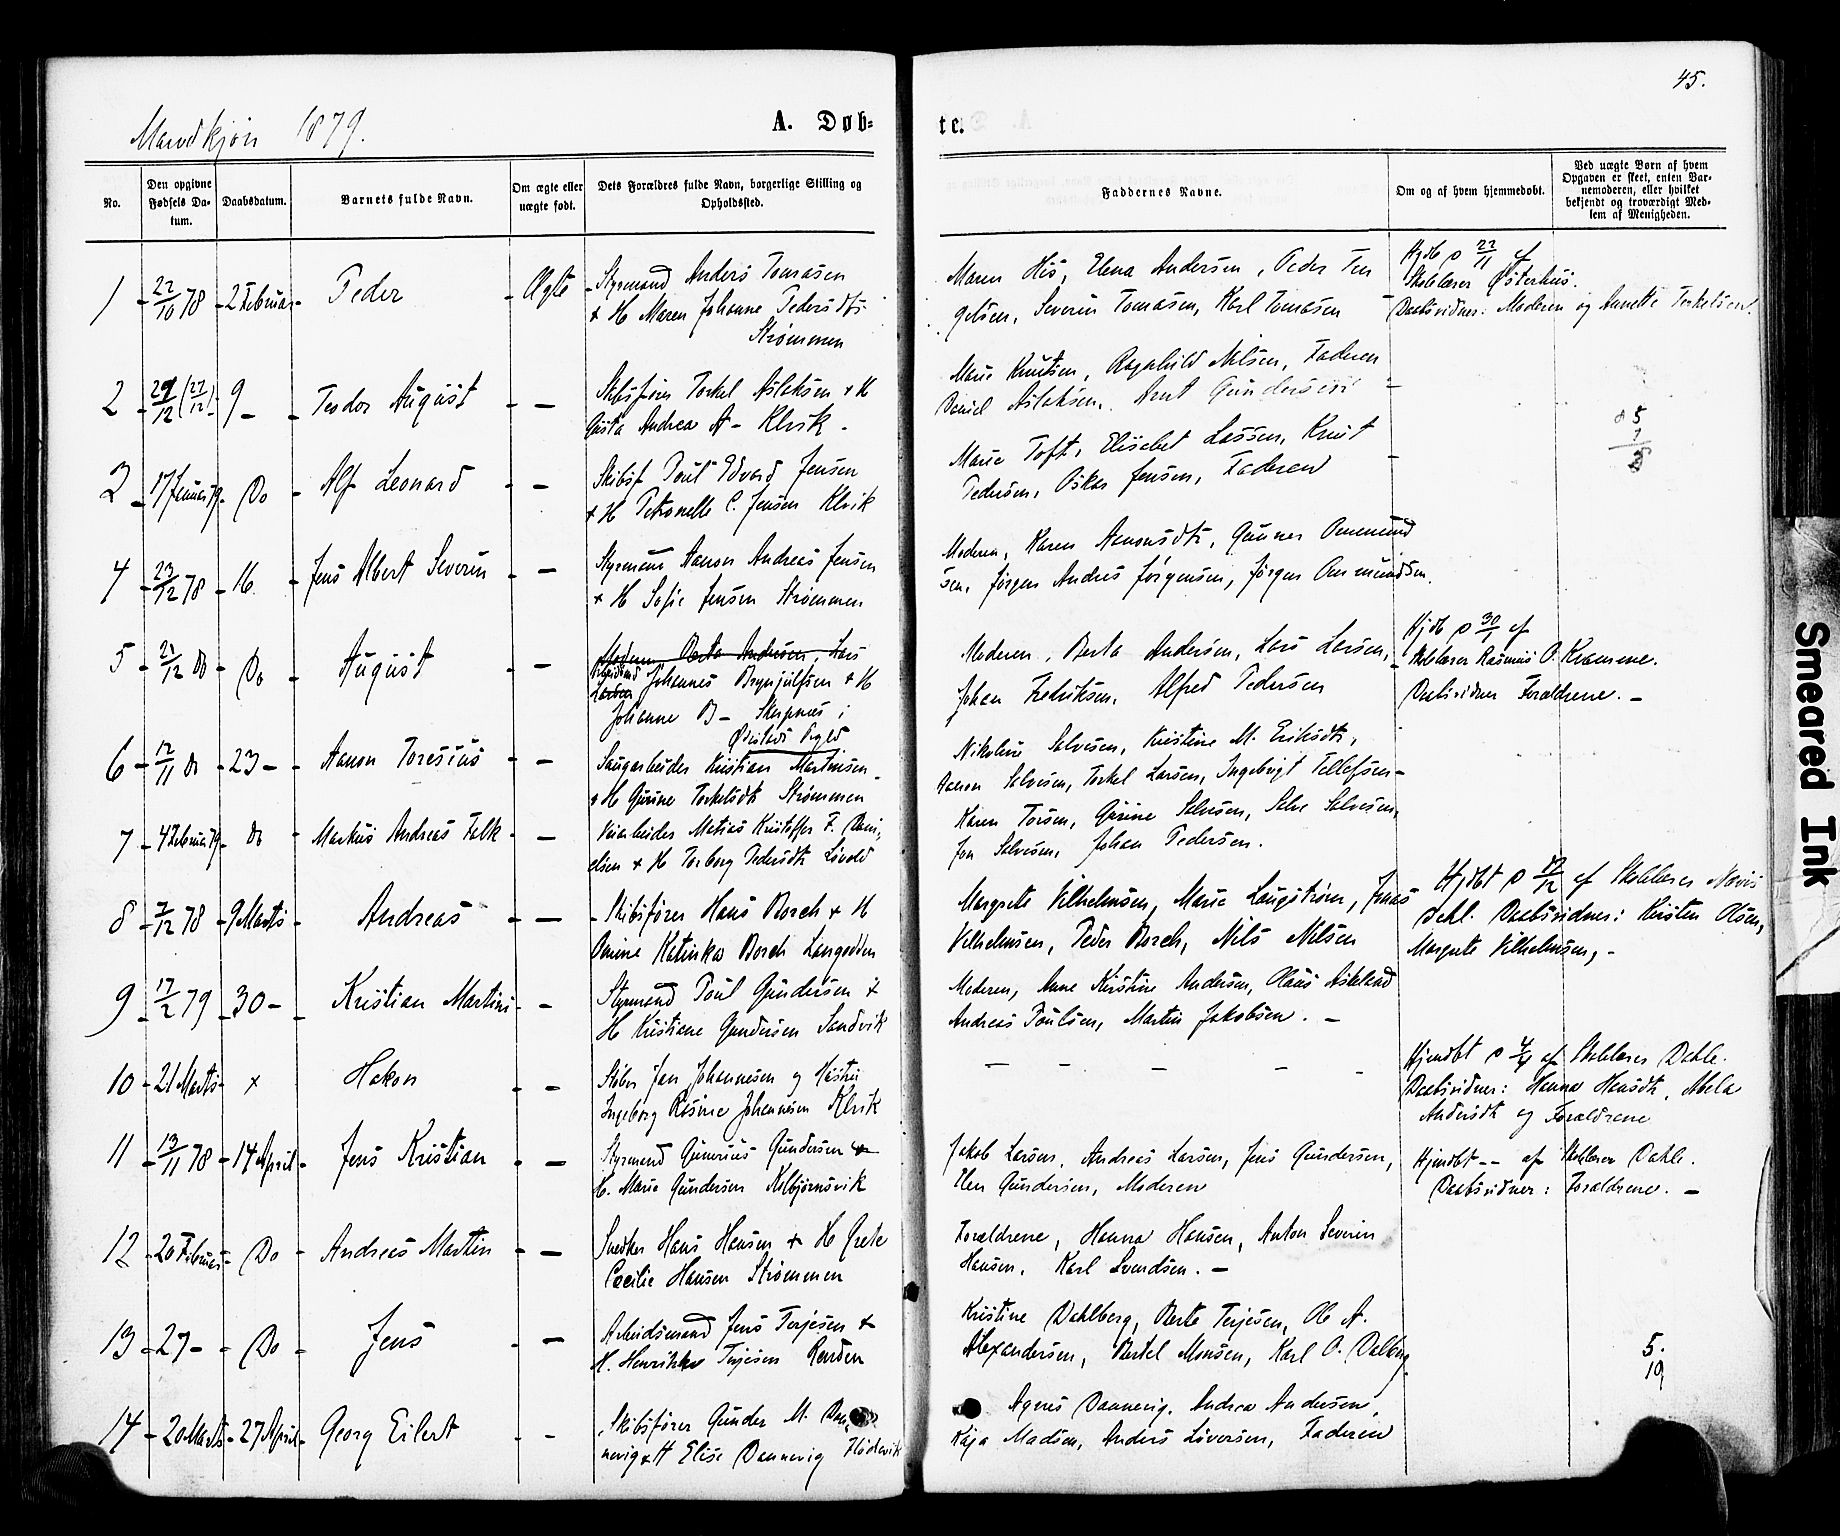 45.
Mandkjøn 1879.
A. Døb-
te.
No.
Den opgivne Fødsels Da-
tum.
Daabsdatum.
Barnets fulde Navn.
Om ægte eller
uægte født.
Dets Forældres fulde Navn, borgerlige Stilling og
Opholdssted.
Faddernes Navne.
Om og af hvem hjemmedøbt.
Ved uægte Børn af hvem
Opgaven er skeet, enten Bar-
nemoderen, eller hvilket
bekjendt og troværdigt Med-
lem af Menigheden.
1 - 22/10 78 - 2 Februar - Peder - Ægte - Styrmand Anders Tomasen
+ H Maren Johanne Pedersdtr
Strømmen
Maren His, Elena Andersen, Peder Ten
gelsen, Severin Tomasen, Karl Tomasen
Hjdb d 22/11 af
Skolelærer Østerhus.
Daabsvidner: Moderen og Annette Terkelsen.
2 - 29/12 (27/12) - 9 - Teodor August - - Skibsfører Torkel Aslaksen + H
Gusta Andrea A - Klvik -
Marie Knutsen, Ragnhild Nilsen, Faderen
Daniel Aslaksen, Arnt Gundersen -
3 - 17 Januar 79 - Do - Alf Leonard - - Skibsf Poul Edvard Jensen
+ H Petronelle C. Jensen Klvik
Marie Toft, Elisebet Lassen, Knut
Pedersen, Oskar Jensen, Faderen
4 - 23/12 78 - 16. - Jens Albert Severin - - Styrmand Aanon Andreas Jensen
+ H Sofie Jensen Strømmen
Moderen, Karen Aanonsdtr, Gunner Ommund
sen, Jørgen Andres Jørgensen, Jørgen Ommundsen.
5 - 21/12 do - Do - August - - Moderen Berta Andersen, Lars
Larsen Johannes Brynjulfsen + H
Johanne B - Skarpnes i
Øiestads Prgld
Moderen, Berta Andersen, Lars Larsen,
Johan Fredriksen, Alfred Pedersen
Hjdb d 30/1 af
Skolelærer Rasmus O. Kramme.
Daabsvidner Forældrene. -
6 - 12/11 do - 23 - - Aanon Toresius - - Saugarbeider Kristian Martinsen
+ H Gurine Torkelsdtr Strømmen
Nikoline Salvesen, Kristine M. Eriksdtr,
Aanon Salvesen, Torkel Larsen, Ingebrigt Tellefsen -
7 - 4 Februar 79 - do - Markus Andreas Falk - - Matias Kristoffer F. Dani-
elsen + H Torborg Pedersdtr Løvold
Karen Torsen, Gurine Salvesen, Salve Salvesen,
Jon Salvesen, Johan Pedersen.
8 - 7/12 78 - 9 Marts - Andreas - - Skibsfører Hans Borch + H
Katinka Borch Langodden
Margrete Vilhelmsen, Marie Laugstrøm, Jonas
Vilhelmsen, Peder Borch, Nils Nilsen
Hjdbt d 12 af Skolelærer
Dahl. Daabsvidner: Kirsten Olsen,
Margrete Vilhelmsen, -
9 - 17/2 79 - 30 - - Kristian Martini - - Styrmand Poul Gundersen +
H Kristiane Gundersen Sandvik
Moderen, Anne Kirstine Andersen, Olaus Askeland
Andreas Poulsen, Martin Jakobsen. -
10 - 21 Marts - x Hakon - - Jan Johannesen og Hustru
Ingeborg Rosine Johannesen Klvik
- - - - -
Hjemdbt d 4/4 af Skolelærer Dahle.
Daabsvidner: Hanna Hansdtr, Abela
Andersdtr og Forældrene
11 - 13/11 78 - 14 April - Jens Kristian - - Styrmand Gunerius Gundersen +
H. Marie Gundersen Kolbjørnsvik
Jakob Larsen, Andreas Larsen, Jens Gundersen,
Elen Gundersen, Moderen
Hjemdbt - - af Skolelærer Dahle.
Daabsvidner: Forældrene. -
12 - 20 Februar - Do - Andreas Martin - - Snedker Hans Hansen + H Grete
Cecilie Hansen Strømmen
Forældrene, Hanna Hansen, Anton Severin
Hansen, Karl Svendsen. -
13 - 27 - - Do - Jens - - Arbeidsmand Jens Terjesen +
H. Henrikke Terjesen Renden
Kristine Dahlberg, Berte Terjesen, Ole A.
Alexandersen, Bertel Monsen, Karl O. Dalberg
5.
19
14 - 20 Marts - 27 April - Georg Eilert - - Skibsfører Gunder M. Dan
nevig + H Elise Dannevig Flødevik
Agnes Dannevig, Andrea Andersen,
Kaja Madsen, Anders Siversen, Faderen
Smeared Ink